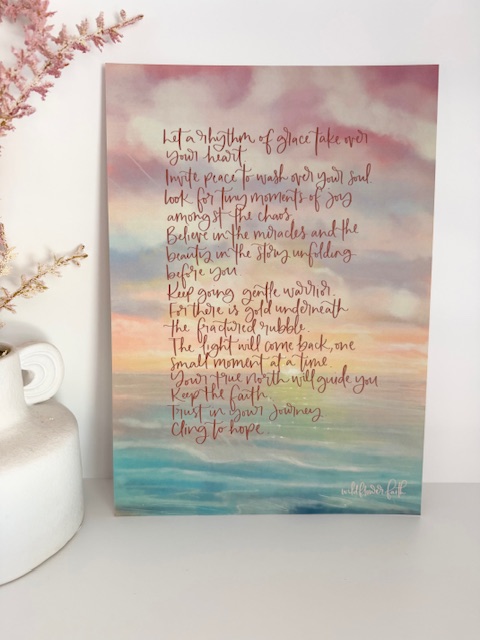 Let a rhythm of grace take over
your heart
Invite peace to wash over your soul
look for tiny moments of joy
amongst the chaos.
Believe in the miracles and the
beauty in the story unfolding
before you.
Keep going gentle warrior.
For there is gold underneath
the fractured rubble.
The light will come back, one
small moment at a time
Your true north will guide you
Keep the faith.
Trust in your journey
Cling to hope.
wildflower faith